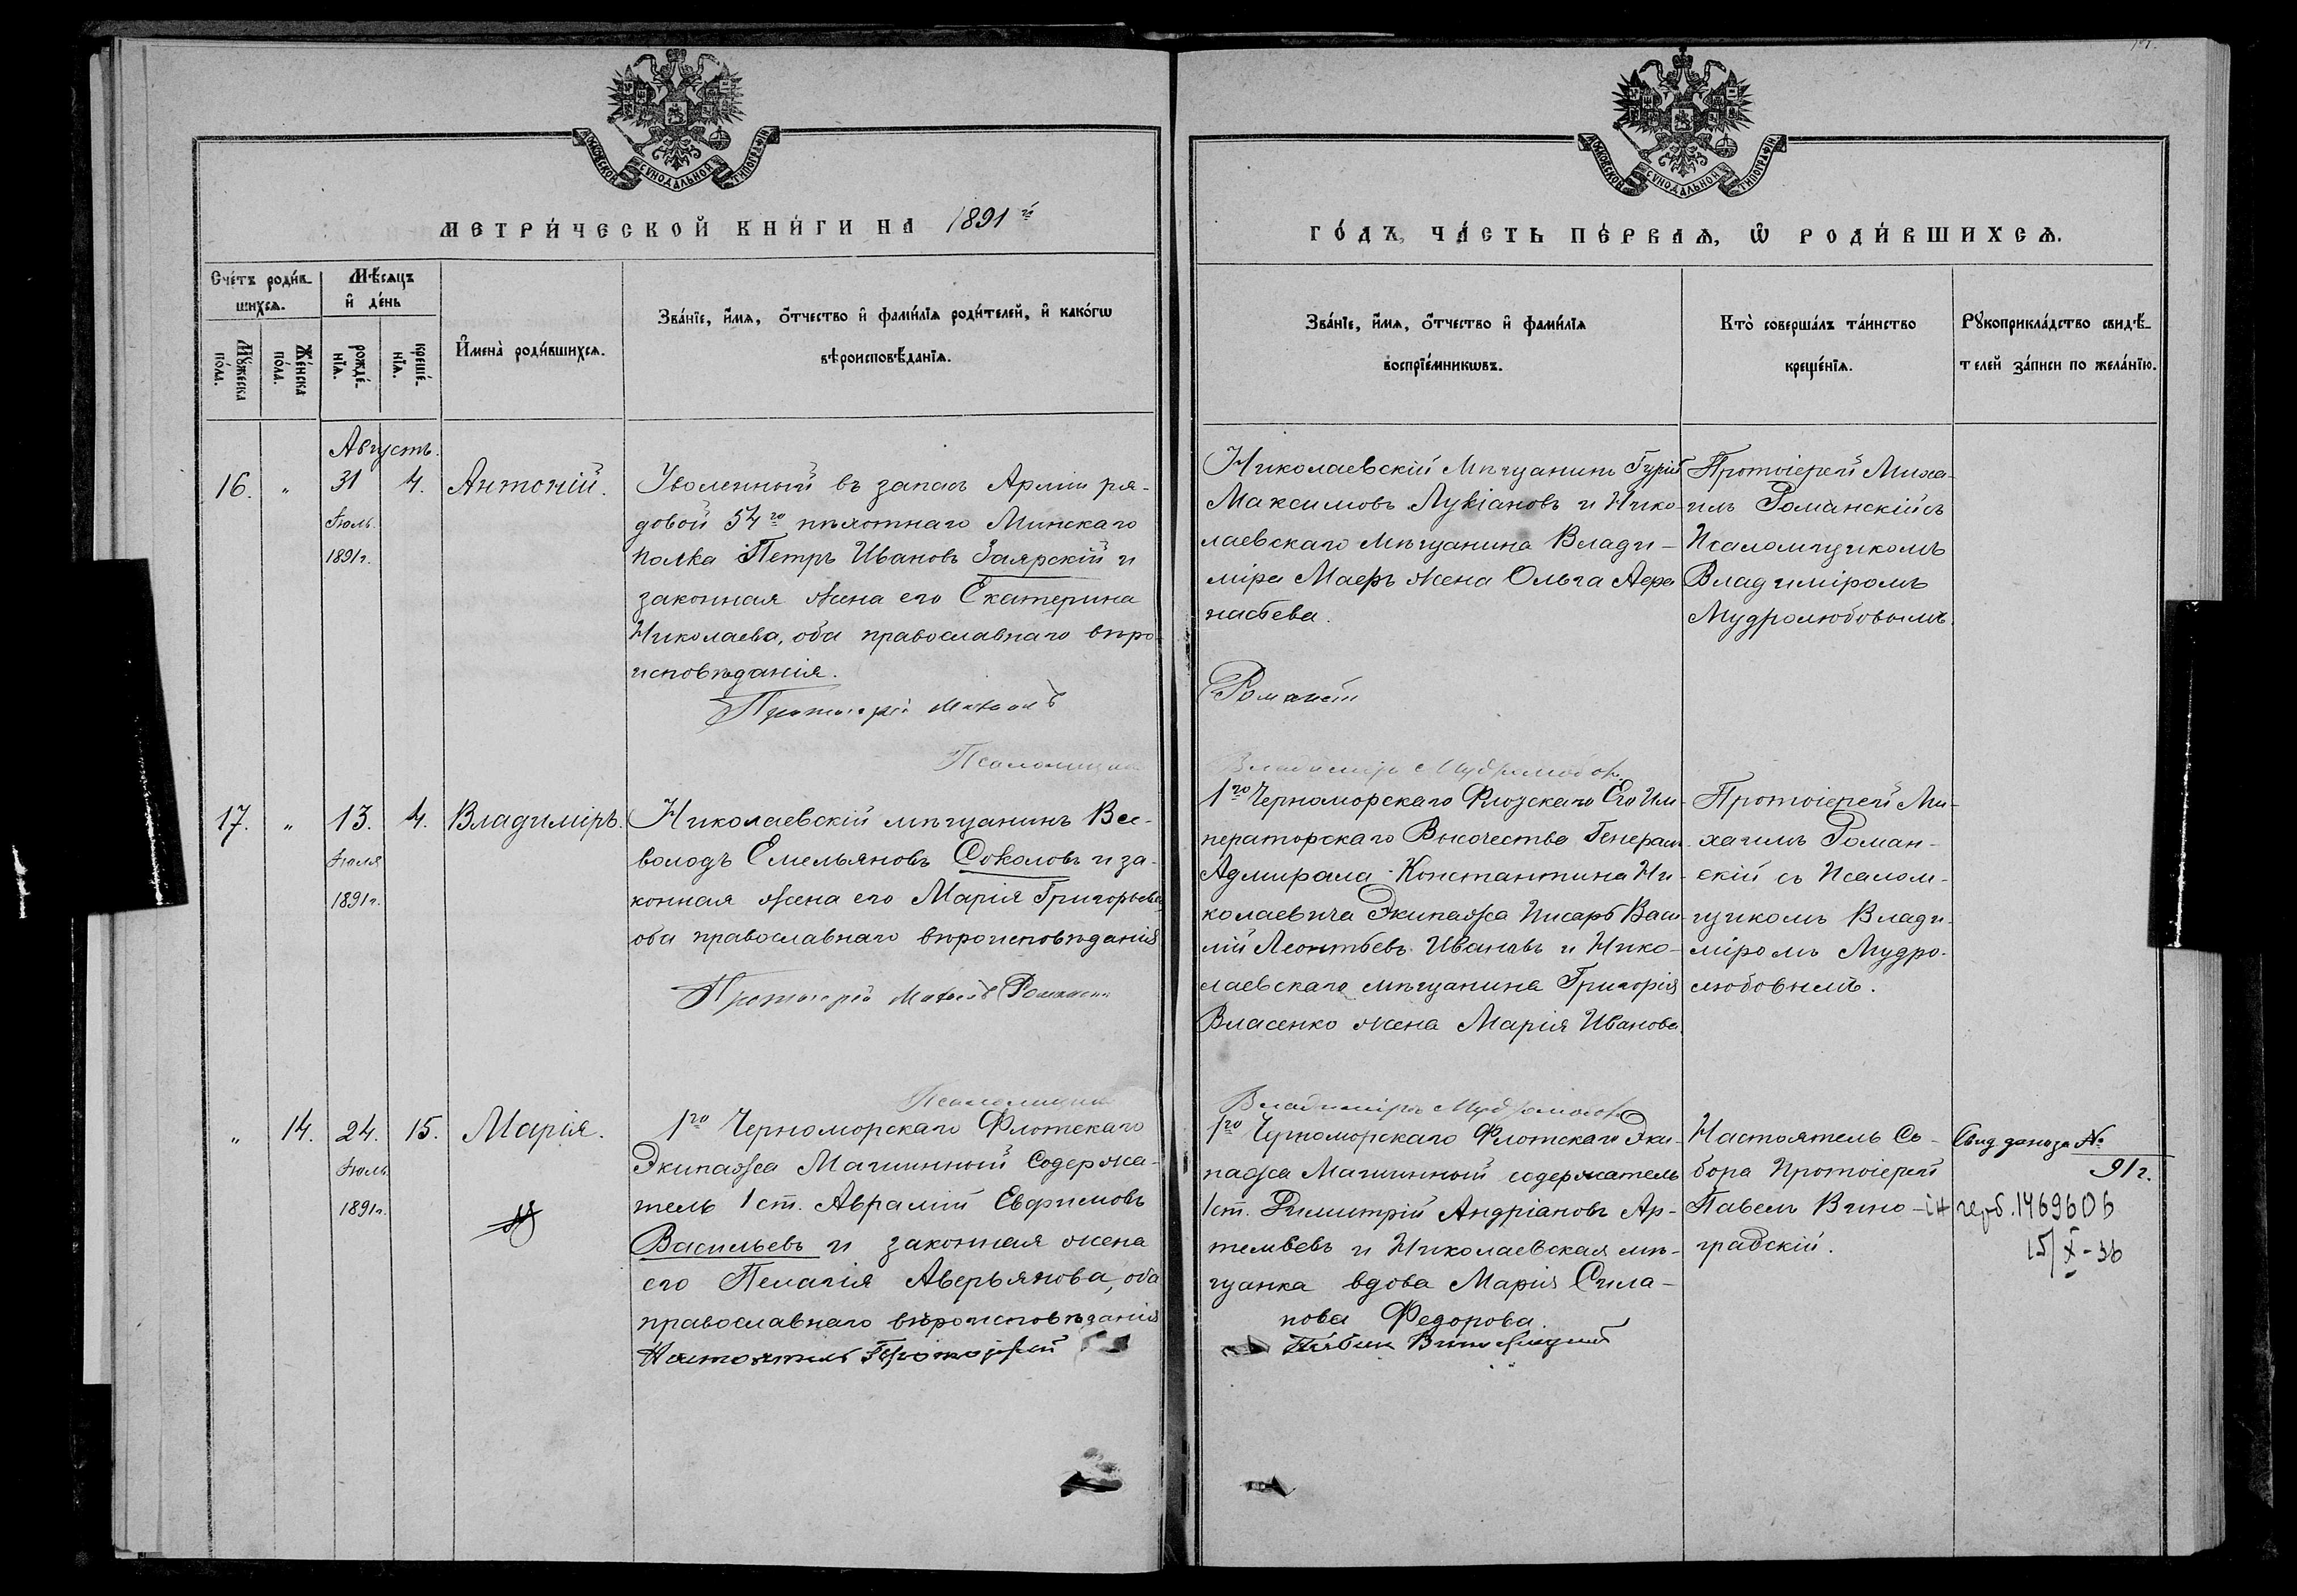 МОСКОВСКОЙ СѴНОДАЛЬНОЙ ТИПОГРАФІИ
МЕТРИ́ЧЕСКОЙ КНИ́ГИ НА 1891й
Сче́тъ роди́в-
шихсѧ.
Мѣ́сѧцъ
и҆ де́нь
Мꙋ́жеска
по́ла.
Же́нска
по́ла.
рожде́-
нїѧ.
креще́-
нїѧ.
И҆мена̀ роди́вшихсѧ.
Зва́нїе, и҆́мѧ, о҆́тчество и҆ фами́лїѧ роди́телей, и҆ како́гѡ
вѣроисповѣ́данїѧ.
Августъ.
16.
"
31
Іюль.
1891г.
4.
Антоній.
Уволенный въ запасъ Арміи ря-
довой 54го пѣхотнаго Минскаго
полка Петръ Ивановъ Заярскій и
законная жена его Екатерина
Николаева, оба православнаго вѣро-
исповѣданія.
Протоіерей Михаилъ
Псаломщикъ
17.
"
13.
Іюля
1891г.
4.
Владиміръ.
Николаевскій мѣщанинъ Все-
володъ Емельяновъ Соколовъ и за-
конная жена его Марія Григорьева,
оба православнаго вѣроисповѣданія
Протоіерей Михаилъ Романскій
Псаломщикъ
"
14.
24.
Іюль
1891г.
15.
Марія.
1го Черноморскаго Флотскаго
Экипажа Машинный Содержа-
тель 1 ст. Аврамій Евфимовъ
Васильевъ и законная жена
его Пелагія Аверьянова, оба
православнаго вѣроисповѣданія
Настоятель Протоіерей
МОСКОВСКОЙ СѴНОДАЛЬНОЙ ТИПОГРАФІИ
ГО́ДЪ, ЧА́СТЬ ПЕ́РВАѦ, Ѡ҆ РОДИ́ВШИХСѦ.
Зва́нїе, и҆́мѧ, о҆́тчество и҆ фами́лїѧ
воспрїе́мникѡвъ.
Кто̀ соверша́лъ та́инство
креще́нїѧ.
Рꙋкоприкла́дство свидѣ́-
телей за́писи по жела́нїю.
Николаевскій Мѣщанинъ Гурій
Максимовъ Лукіановъ и Нико-
лаевскаго мѣщанина Влади-
міра Маеръ жена Ольга Афа
насьева.
Протоіерей Миха-
илъ Романскій съ
Псаломщикомъ
Владиміромъ
Мудролюбовымъ.
Романскій
Владиміръ Мудролюбовъ
1го Черноморскаго Флотскаго Его Им-
ператорскаго Высочества Генералъ
Адмирала Константина Ни-
колаевича Экипажа Писарь Васи-
лій Леонтьевъ Ивановъ и Нико-
лаевскаго мѣщанина Григорія
Власенко жена Марія Иванова.
Протоіерей Ми-
хаилъ Роман-
скій съ Псалом-
щикомъ Влади-
міромъ Мудро-
любовымъ.
Владиміръ Мудролюбовъ
1го Черноморскаго Флотскаго Эки-
пажа Машинный содержатель
1ст. Димитрій Андріановъ Ар-
темьевъ и Николаевская мѣ-
щанка вдова Марія Сила-
нова Федорова.
Павелъ Виноградскій
Настоятель Со-
бора Протоіерей
Павелъ Вино-
градскій.
Свид. дано за №
91г.
герб. 1469606
15/X-36